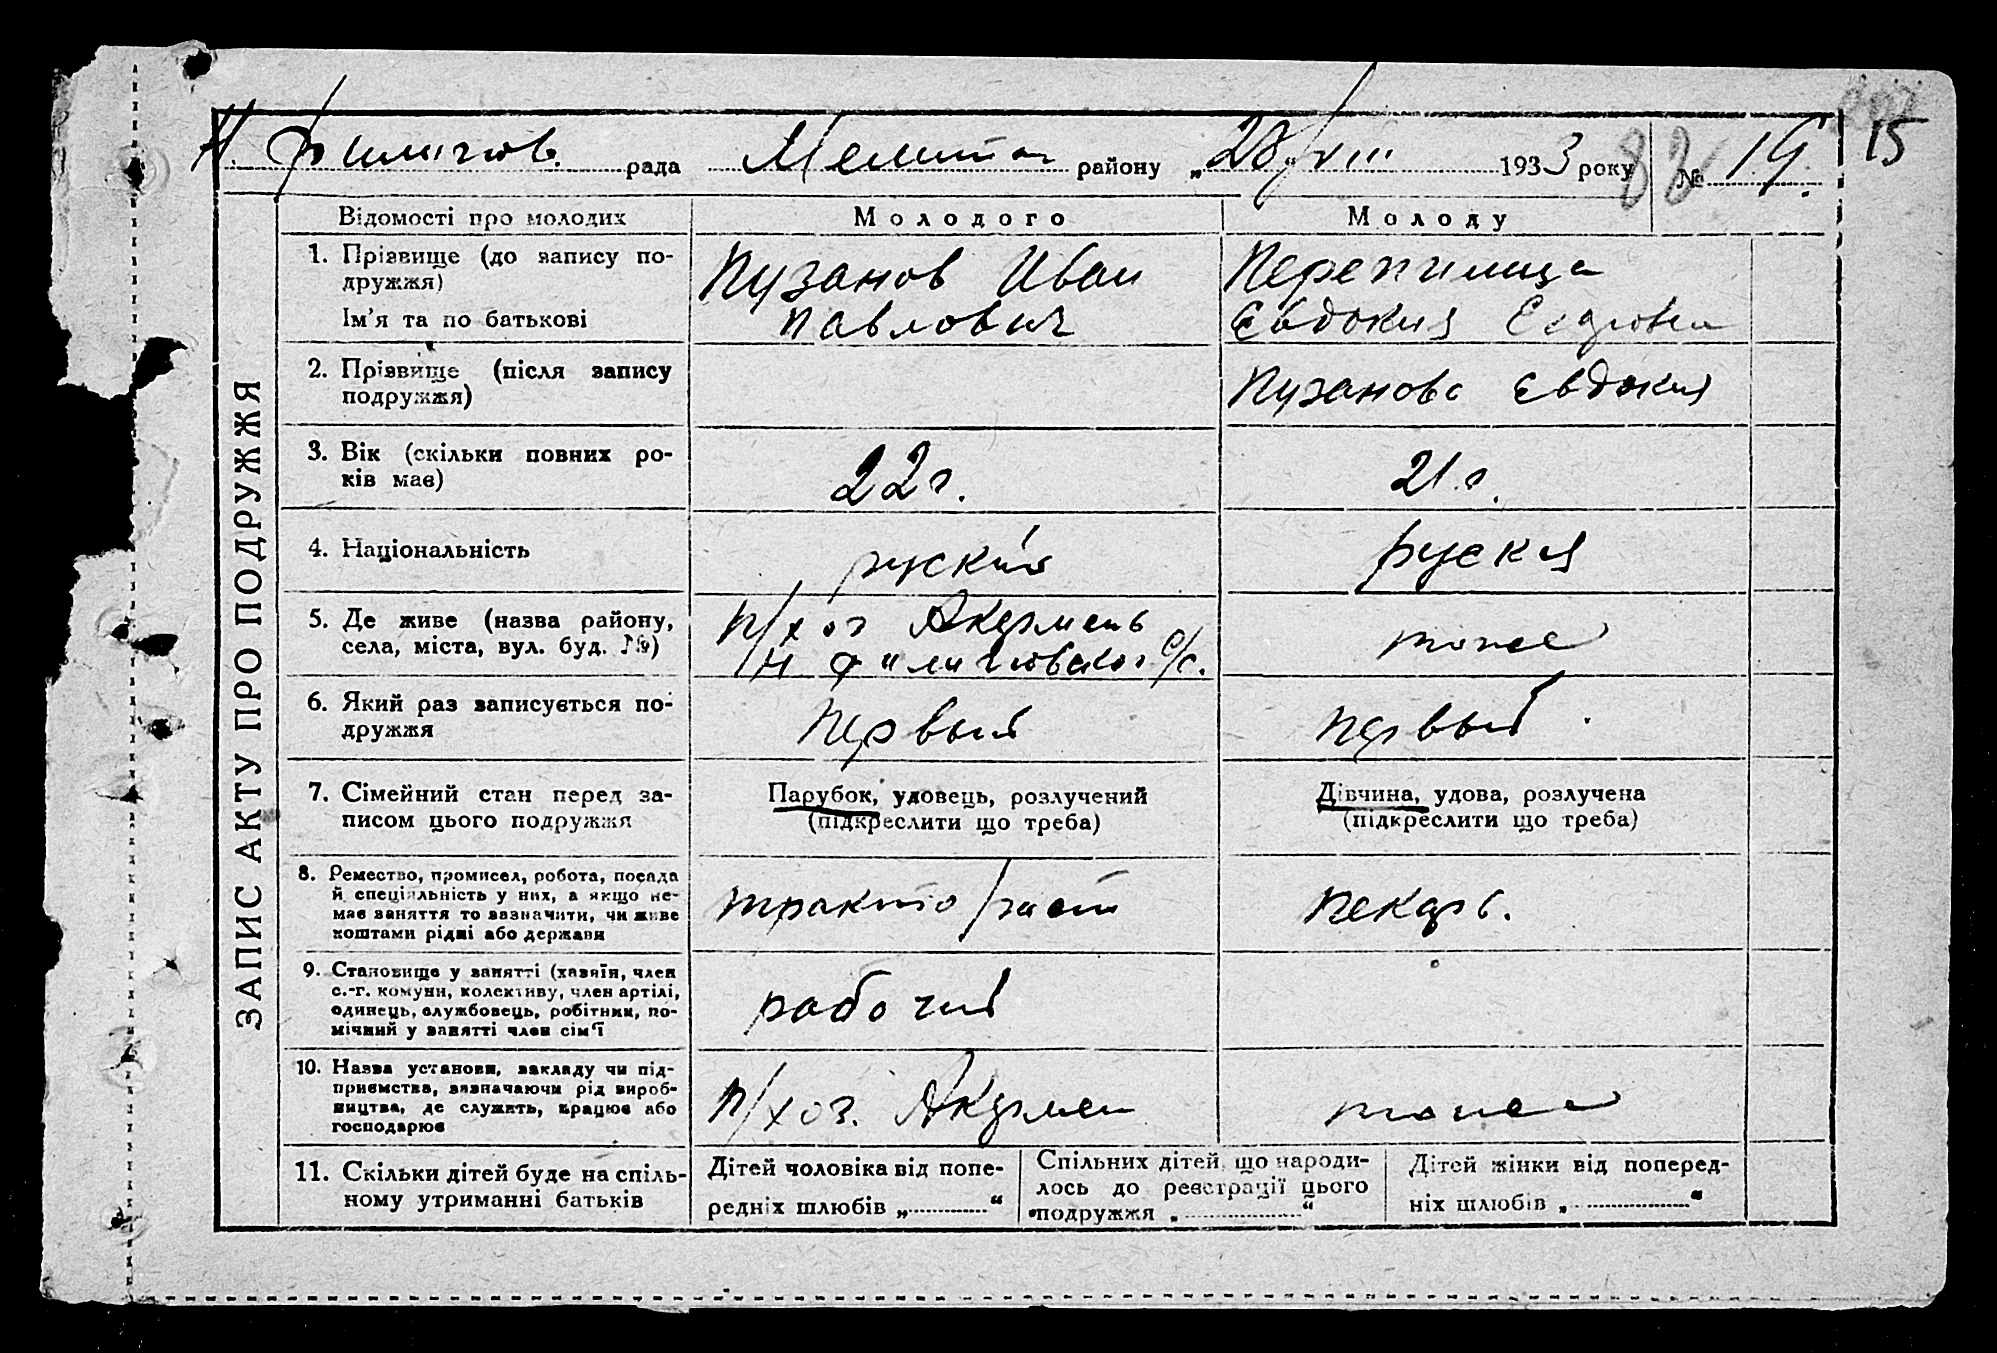 Н. Филипов. рада Мелитоп району „28/VIII 1933 року № 19. 15
82
ЗАПИС АКТУ ПРО ПОДРУЖЖЯ
Відомості про молодих Молодого Молоду
1. Прізвище (до запису по-
дружжя)
Ім'я та по батькові
Пузанов Иван
Павлович
Перепилица
Євдокия
2. Прізвище (після запису
подружжя)
Пузанова Євдокия
3. Вік (скільки повних ро-
ків має)
22 г.
21 г.
4. Національність
руский
руския
5. Де живе (назва району,
села, міста, вул. буд. №)
п/хоз Акермень
Н Филиповской с/с.
тоже
6. Який раз записується по-
дружжя
Первый
Первый
7. Сімейний стан перед за-
писом цього подружжя
Парубок, удовець, розлучений
(підкреслити що треба)
Дівчина, удова, розлучена
(підкреслити що треба)
8. Ремество, промисел, робота, посада
й спеціяльність у них, а якщо не-
має заняття то зазначити, чи живе
коштами рідні або держави
тракторист
Пекарь.
9. Становище у занятті (хазяїн, член
с.-г. комуни, колективу, член артілі,
одинець, службовець, робітник, по-
мічний у занятті член сім'ї
рабочий
10. Назва установи, закладу чи під-
приємства, зазначаючи рід вироб-
ництва, де служить, працює або
господарює
п/хоз. Акермен
тоже
11. Скільки дітей буде на спіль-
ному утриманні батьків
Дітей чоловіка від попе-
редніх шлюбів „ “
Спільних дітей, що народи-
лось до реєстрації цього
подружжя „ “
Дітей жінки від поперед-
ніх шлюбів „ “